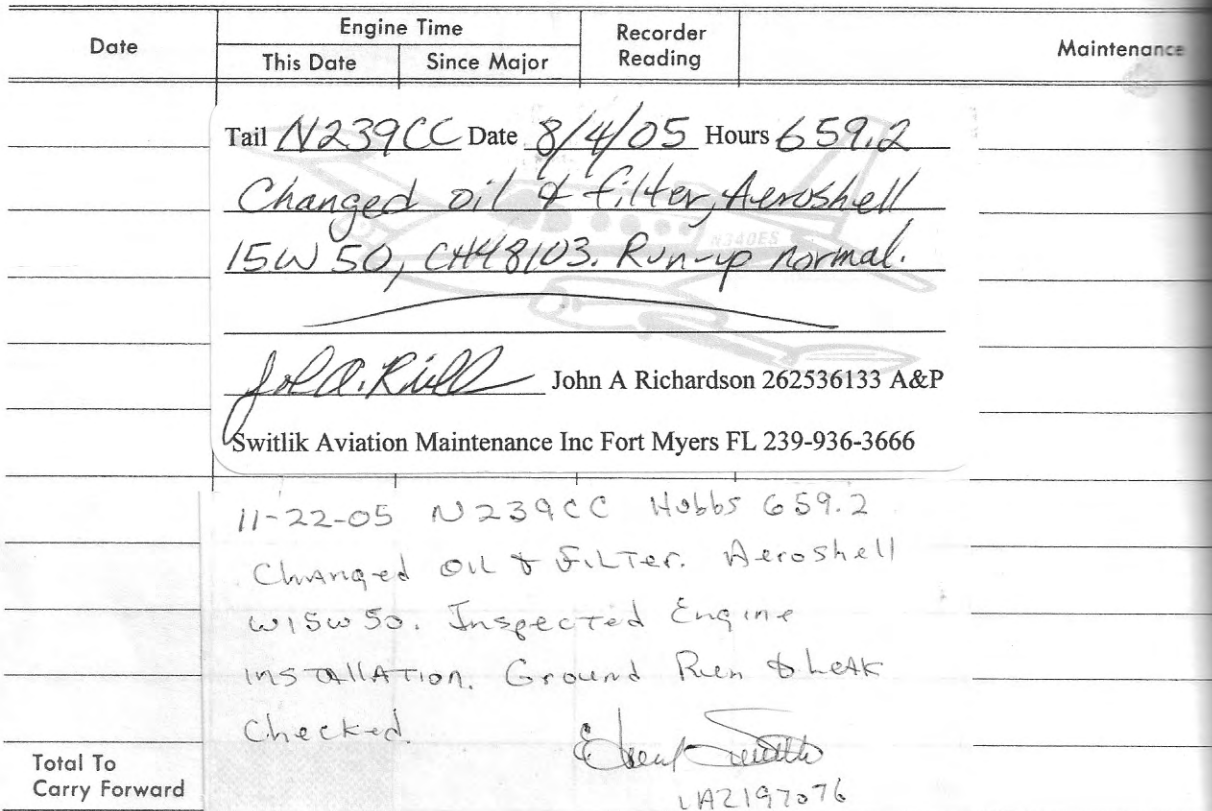 Date
Engine Time
This Date
Since Major
Recorder
Reading
Maintenance
Tail N239CC Date 8/4/05 Hours 659.2
Changed oil & filter, Aeroshell
N340ES
15W50, CH48103. Run-up normal.
John A Richardson 262536133 A&P
Switlik Aviation Maintenance Inc Fort Myers FL 239-936-3666
11-22-05 N239CC Hobbs 659.2
Changed OIL & FILTer. Aeroshell
W15W50. Inspected Engine
InstallATion. Ground Run & LeAk
Checked.
2197076
Total To
Carry Forward